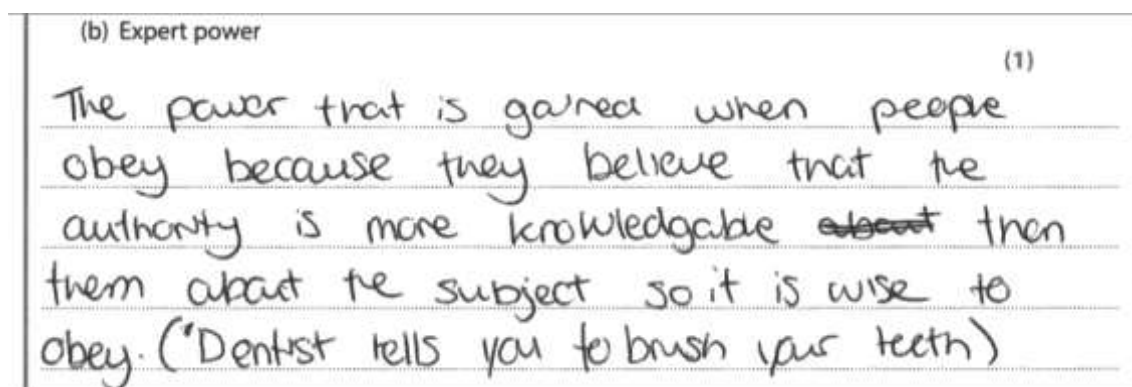 (b) Expert power
(1)
The power that is gained when people
obey because they believe that the
authority is more knowledgable about than
them about the subject so it is wise to
obey. ("Dentist tells you to brush your teeth)